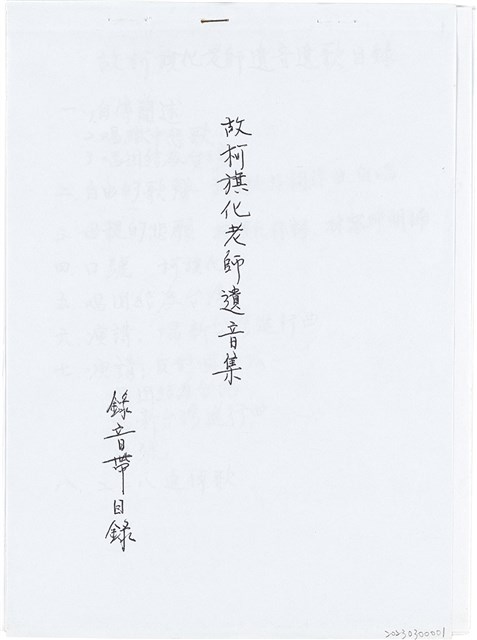 故柯旗化老師遺音集
錄音帶目錄
20230300001